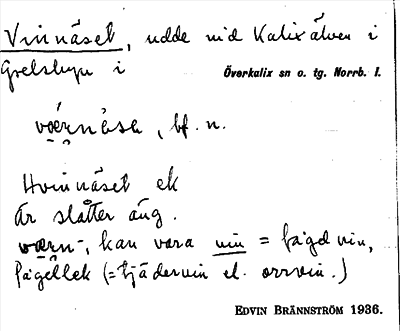 Vinnäset, udde vid Kalixälven i
Grelsbyn i Överkalix sn o. tg. Norrb. l.
væ̣rnäsa, bf. n.
Hvinnäset ek
Är slåtter äng.
værn-, kan vara vin = fågd vin,
(= tjädervin el. orrvin.)
EDVIN BRÄNNSTRÖM 1936.